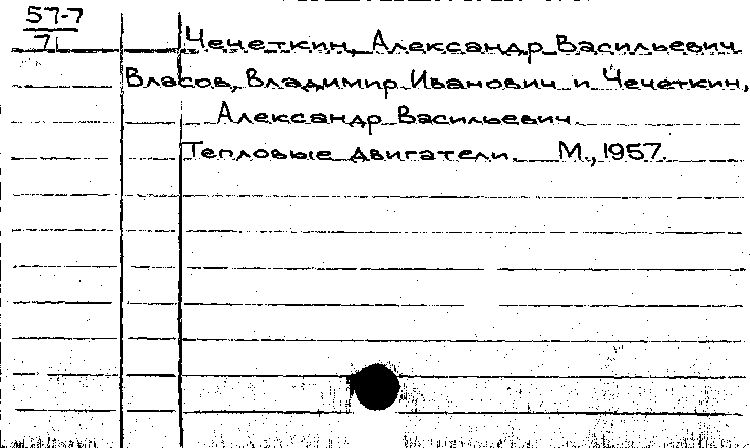 57-7
71
Чечеткин, Александр Васильевич
Власов, Владимир Иванович и Чечеткин,
Александр Васильевич.
Тепловые двигатели. М., 1957.